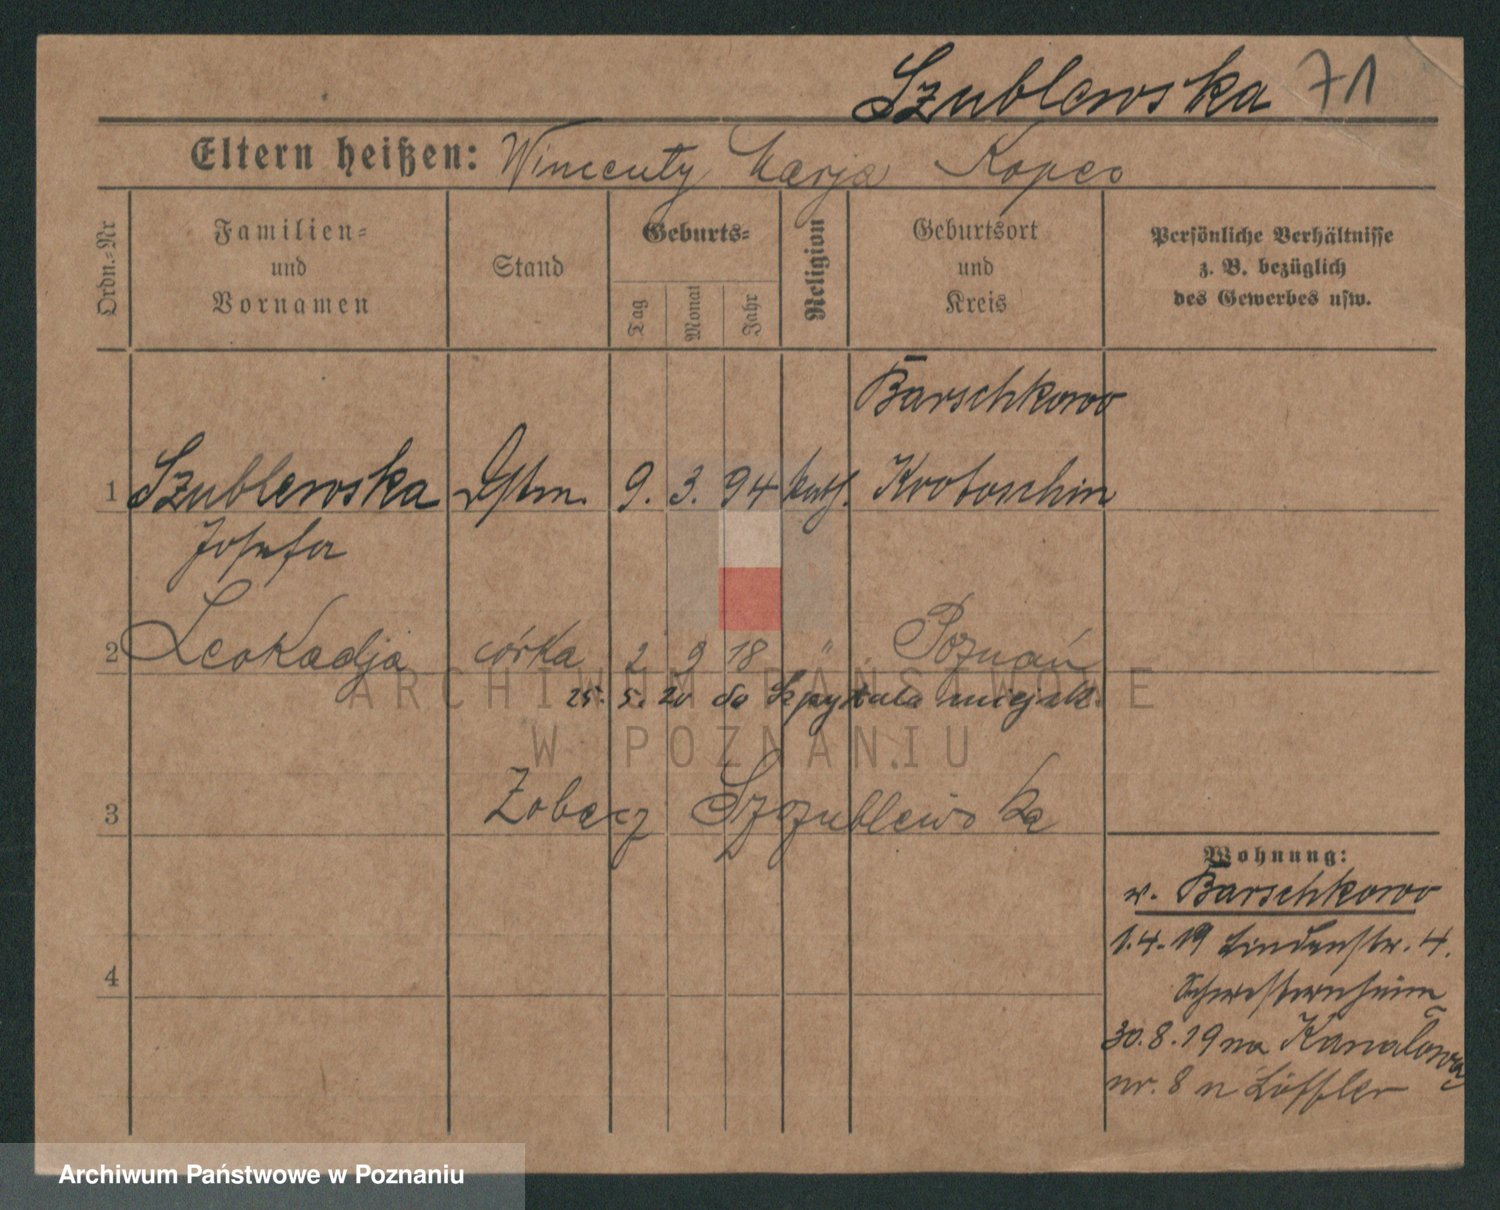 Szublewska 71
Eltern heißen: Wincenty Marja Kopeć
Ordn.-Nr
Familien-
und
Vornamen
Stand
Geburts-
Tag
Monat
Jahr
Religion
Geburtsort
und
Kreis
Persönliche Verhältnisse
z. B. bezüglich
des Gewerbes usw.
Barschkowo
1 Szublewska Dstm. 9. 3. 94 kath. Krotoschin
Josefa
2 Leokadja córka 2 9 18 " Poznań
25. 5. 20 do Szpytala miejsk.
3 Zobacz Szczublewska
Wohnung:
v. Barschkowo
1.4.19 Lindenstr. 4.
Schwesternheim
30.8.19 na Kanalową
nr. 8 u Löffler
4
ARCHIWUM PAŃSTWOWE
W POZNANIU
Archiwum Państwowe w Poznaniu